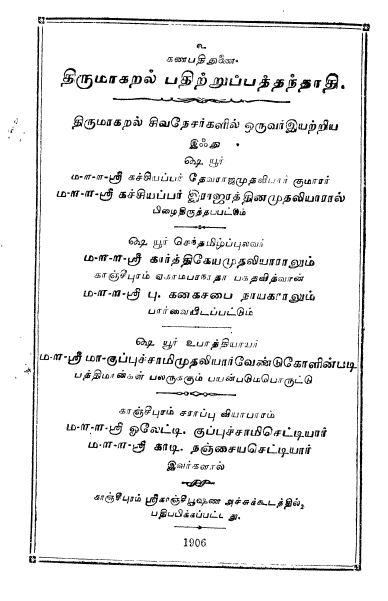 உ
கணபதிதுணை.
திருமாகறல் பதிற்றுப்பத்தந்தாதி.
திருமாகறல் சிவநேசர்களில் ஒருவர் இயற்றிய
இஃது
ஷெ யூர்
ம-ள-ள-ஸ்ரீ கச்சியப்பர் தேவராஜமுதலியார் குமாரர்
ம-ள-ள-ஸ்ரீ கச்சியப்பர் இராஜரத்தினமுதலியாரால்
பிழைதிருத்தப்பட்டும்
ஷெ யூர் செந்தமிழ்ப்புலவர்
ம-ள-ள-ஸ்ரீ கார்த்திகேயமுதலியாராலும்
காஞ்சீபுரம் ஏகாம்பரநாதர் பக்தவித்வான்
ம-ள-ள-ஸ்ரீ பு. கனகசபை நாயகராலும்
பார்வையிடப்பட்டும்
ஷெ யூர் உபாத்தியாயர்
ம-ள-ள-ஸ்ரீ மா-குப்புச்சாமிமுதலியார்வேண்டுகோளின்படி
பத்திமான்கள் பலருக்கும் பயன்படும்பொருட்டு
காஞ்சீபுரம் சராப்பு வியாபாரம்
ம-ள-ள-ஸ்ரீ ஓலேட்டி. குப்புச்சாமிசெட்டியார்
ம-ள-ள-ஸ்ரீ காடி. நஞ்சையசெட்டியார்
இவர்களால்
காஞ்சீபுரம் ஸ்ரீகாஞ்சீபூஷண அச்சுக்கூடத்தில்
பதிப்பிக்கப்பட்டது.
1906